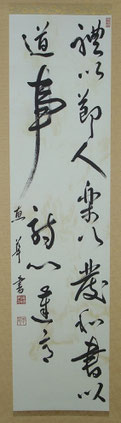 禮以節人樂以發和書以
道事詩以達意
書